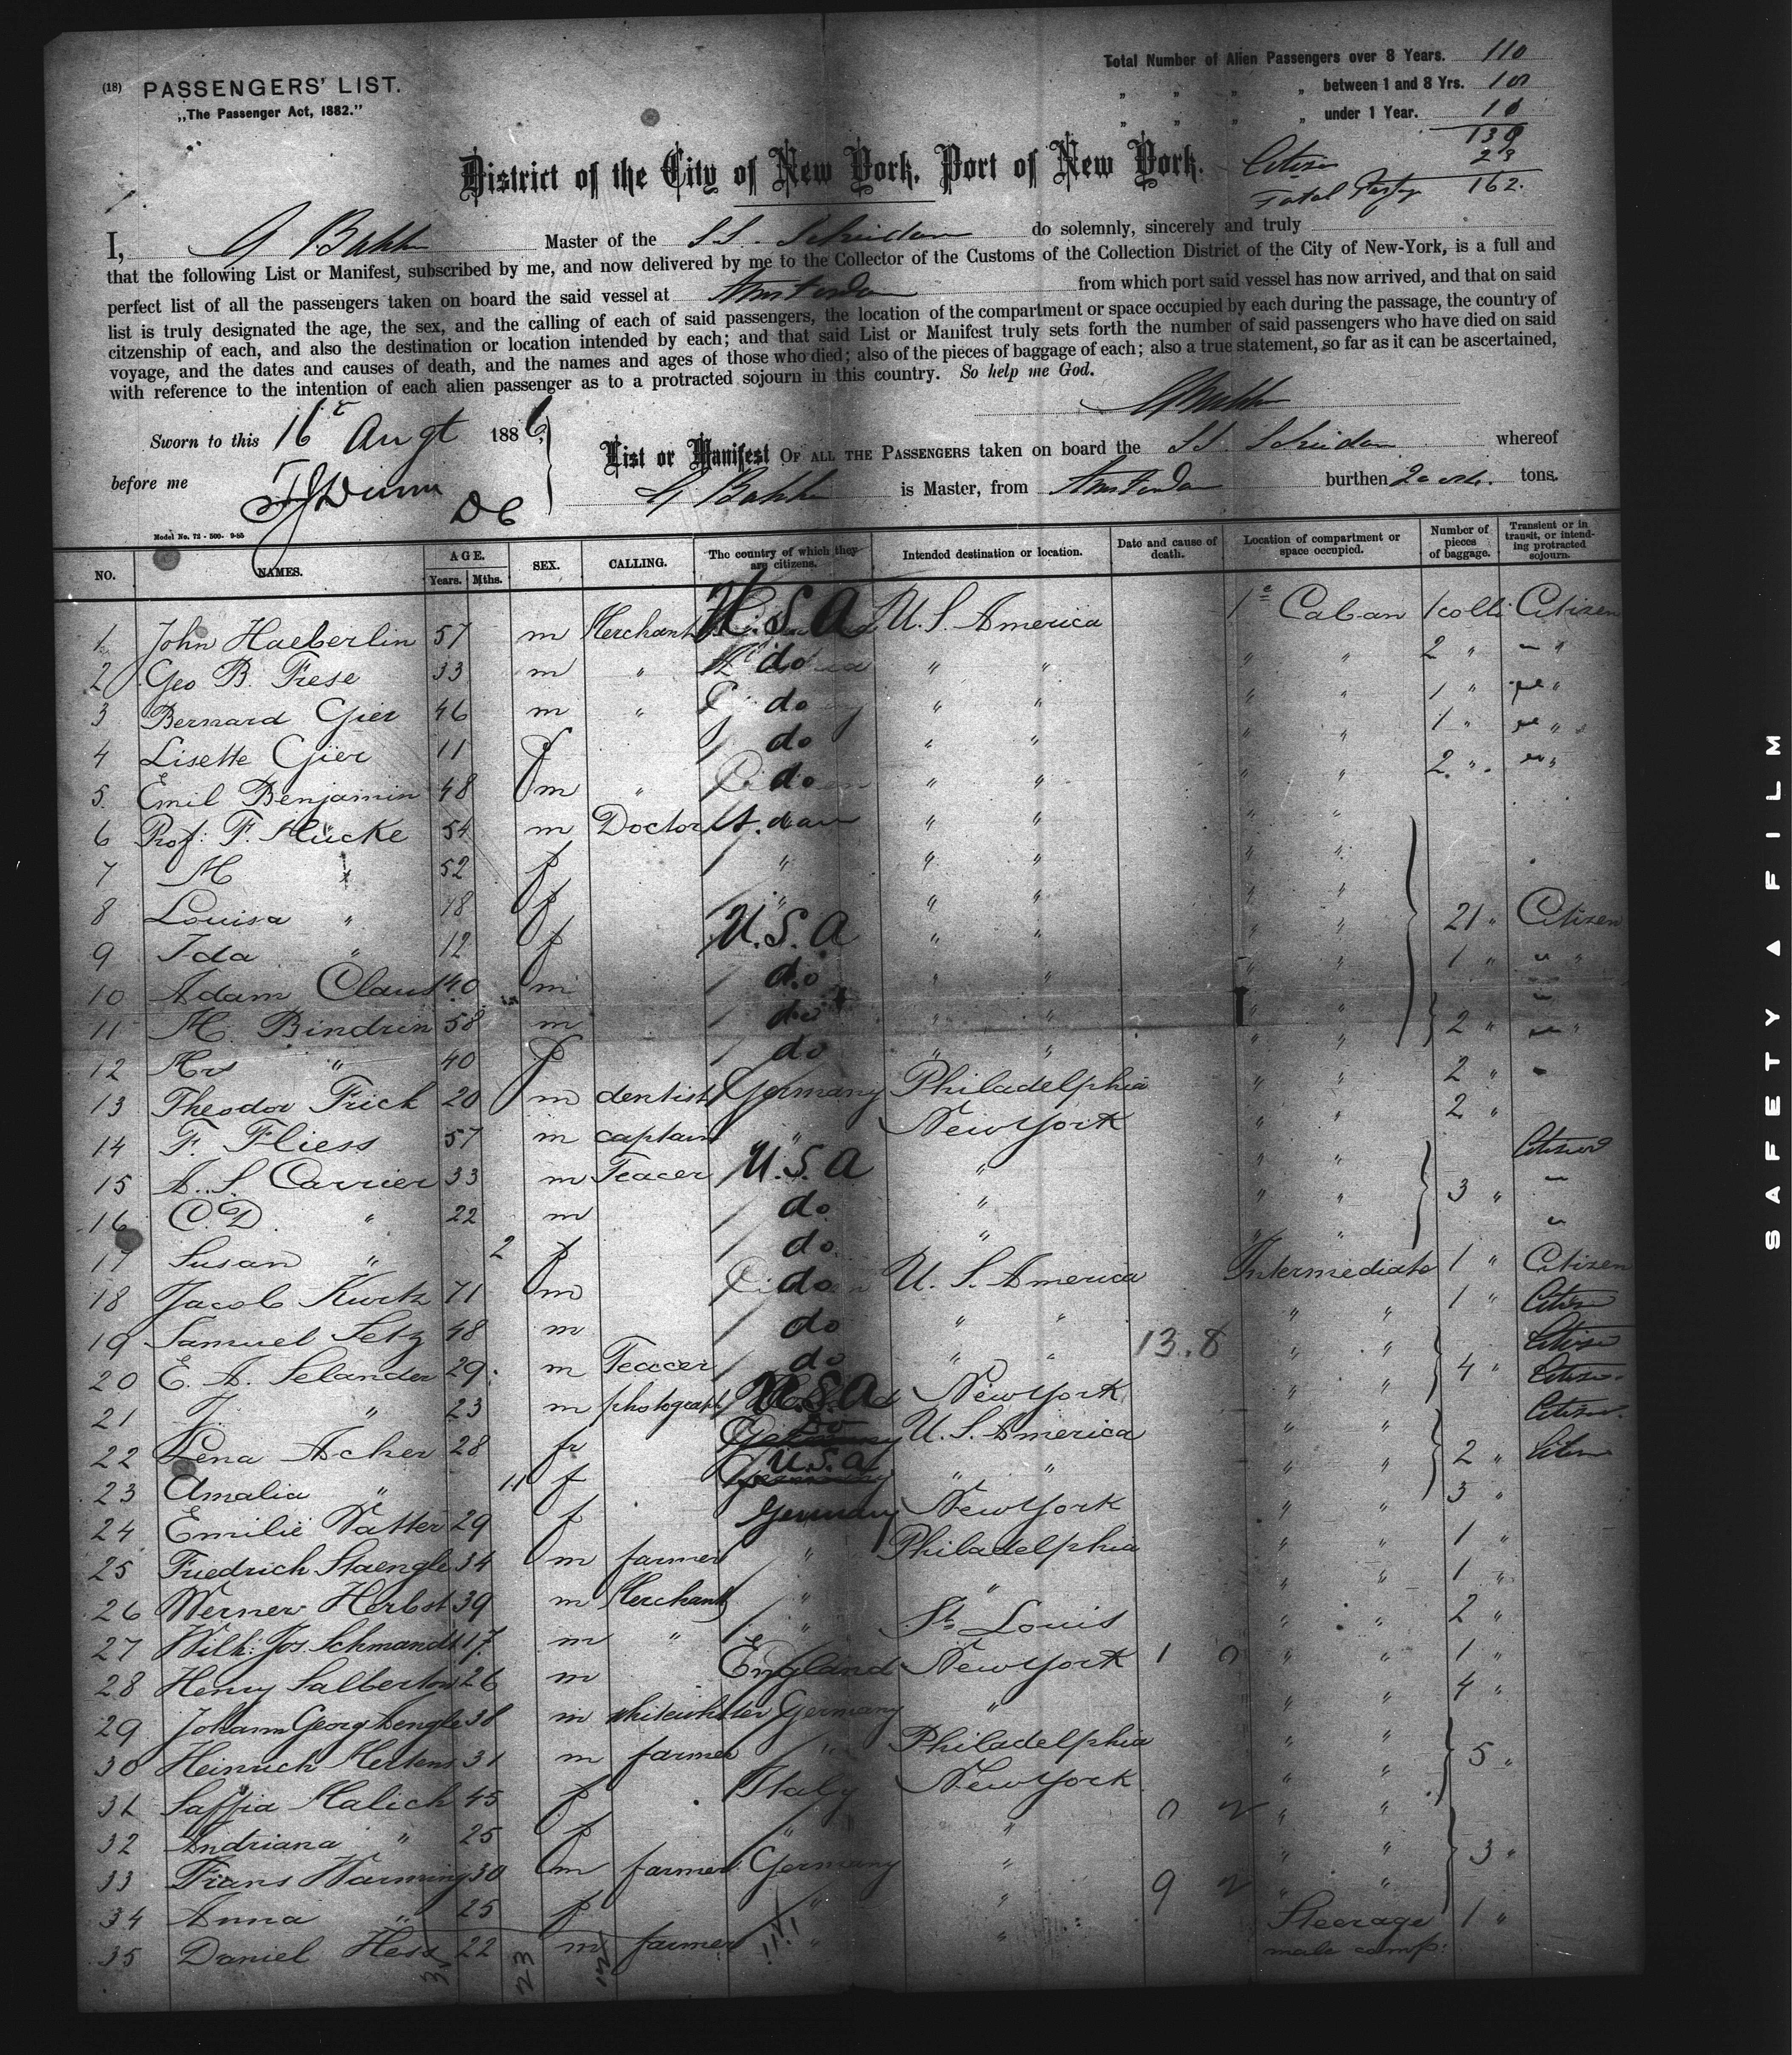 (18) PASSENGERS' LIST.
„The Passenger Act, 1882."
Total Number of Alien Passengers over 8 Years. 110
„ „ „ „ between 1 and 8 Yrs. 10
„ „ „ „ under 1 Year. 10
139
23
162.
District of the City of New York, Port of New York.
I, G Bakker Master of the S.S. Schiedam do solemnly, sincerely and truly
that the following List or Manifest, subscribed by me, and now delivered by me to the Collector of the Customs of the Collection District of the City of New-York, is a full and
perfect list of all the passengers taken on board the said vessel at Amsterdam from which port said vessel has now arrived, and that on said
list is truly designated the age, the sex, and the calling of each of said passengers, the location of the compartment or space occupied by each during the passage, the country of
citzenship of each, and also the destination or location intended by each; and that said List or Manifest truly sets forth the number of said passengers who have died on said
voyage, and the dates and causes of death, and the names and ages of those who died; also of the pieces of baggage of each; also a true statement, so far as it can be ascertained,
with reference to the intention of each alien passenger as to a protracted sojourn in this country. So help me God.
G Bakker
Sworn to this 16 Augt 1886
before me
List or Manifest OF ALL THE PASSENGERS taken on board the S.S. Schiedam whereof
G Bakker is Master, from Amsterdam burthen tons.
Model No. 72 - 500. 9-85
NO. NAMES. AGE. Years. Mths. SEX. CALLING. The country of which they are citizens. Intended destination or location. Date and cause of death. Location of compartment or space occupied. Number of pieces of baggage. Transient or in transit, or intending protracted sojourn.
1 John Haeberlin 57 m Merchant U.S.A U.S. America 1e Caban 1 colli Citizen
2 Geo B. Frese 33 m " do " " " " 2 " "
3 Bernard Gier 46 m " do " " " " 1 " "
4 Lisette Gier 11 f do " " " " 1 " "
5 Emil Benjamin 48 m " do " " " " 2 " "
6 Prof. F. Mücke 54 m Doctor " " " "
7 M " 52 f " " " " "
8 Louisa " 18 f " " " " "
9 Ida " 12 f U.S.A " " " " 21 " Citizen
10 Adam Claus 40 m do " " " " 1 " "
11 M. Bindrin 58 m do " " " "
12 Mrs " 40 f do " " " " 2 "
13 Theodor Frick 20 m dentist Germany Philadelphia " " 2 "
14 F. Fliess 57 m captain " New York " " 2 "
15 A. S. Carrier 33 m Teacer U.S.A " " " Citizen
16 C. D. " 22 m do " " " 3 "
17 Susan " 2 f do " " "
18 Jacob Kurtz 71 m do U.S. America Intermediate 1 " Citizen
19 Samuel Setz 48 m do " " " " 1 " Citizen
20 E. A. Selander 29 m Teacer do " " 13.8 " " Citizen
21 J. " 23 m photograph U.S.A New York " " 4 " Citizen
22 Lena Acher 28 f do U.S. America " " Citizen
23 Amalia " 11 f U.S.A " " " " 2 " Citizen
24 Emilie Vatter 29 f Germany New York " " 3 "
25 Friedrich Staengle 34 m farmer " Philadelphia " " 1 "
26 Werner Herbst 39 m Merchant " " " " 1 "
27 Wilh: Jos. Schmandt 17 m " " St. Louis " " 2 "
28 Henry Salberton 26 m England New York " " 1 "
29 Johann Georg Zengle 38 m Germany " " " 4 "
30 Heinrich Mertens 31 m farmer " Philadelphia " "
31 Saffia Malich 45 f Italy New York " " 5 "
32 Andriana " 25 f " " " "
33 Frans Warming 30 m farmer Germany " " " 3 "
34 Anna " 25 f " " " "
35 Daniel Hess 22 m farmer " " Steerage 1 "
male comp:
SAFETY FILM